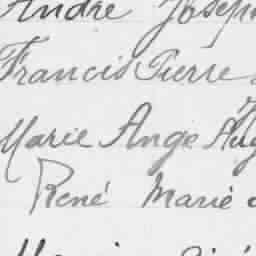 André Joseph
Francis Pierre
Marie Ange Aug
René Marie